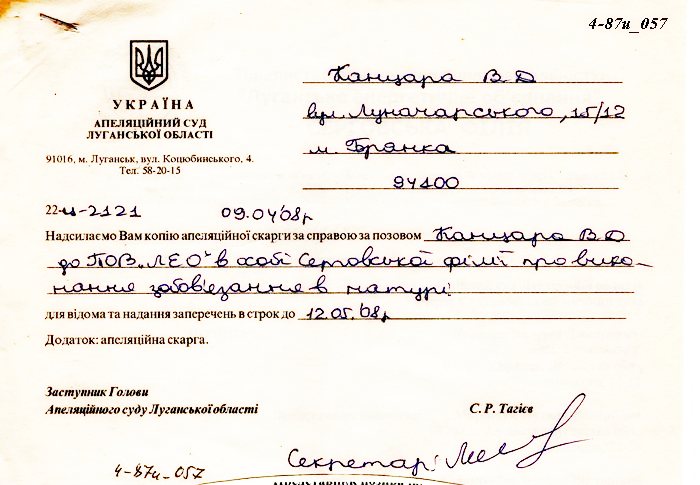 4-87и_057
УКРАЇНА
АПЕЛЯЦІЙНИЙ СУД
ЛУГАНСЬКОЇ ОБЛАСТІ
91016, м. Луганськ, вул. Коцюбинського, 4.
Тел. 58-20-15
Канцара В Д
вул. Луначарського, 15/12
м. Брянка
94100
22-ц-2121 09.04.08р
Надсилаємо Вам копію апеляційної скарги за справою за позовом Канцара В Д
до ТОВ „ЛЕО" в особі філії про вико-
нання забов'езання в натурі
для відома та надання заперечень в строк до 12.05.08р
Додаток: апеляційна скарга.
Заступник Голови
Апеляційного суду Луганської області С. Р. Тагієв
Секретарь
4-87и_057